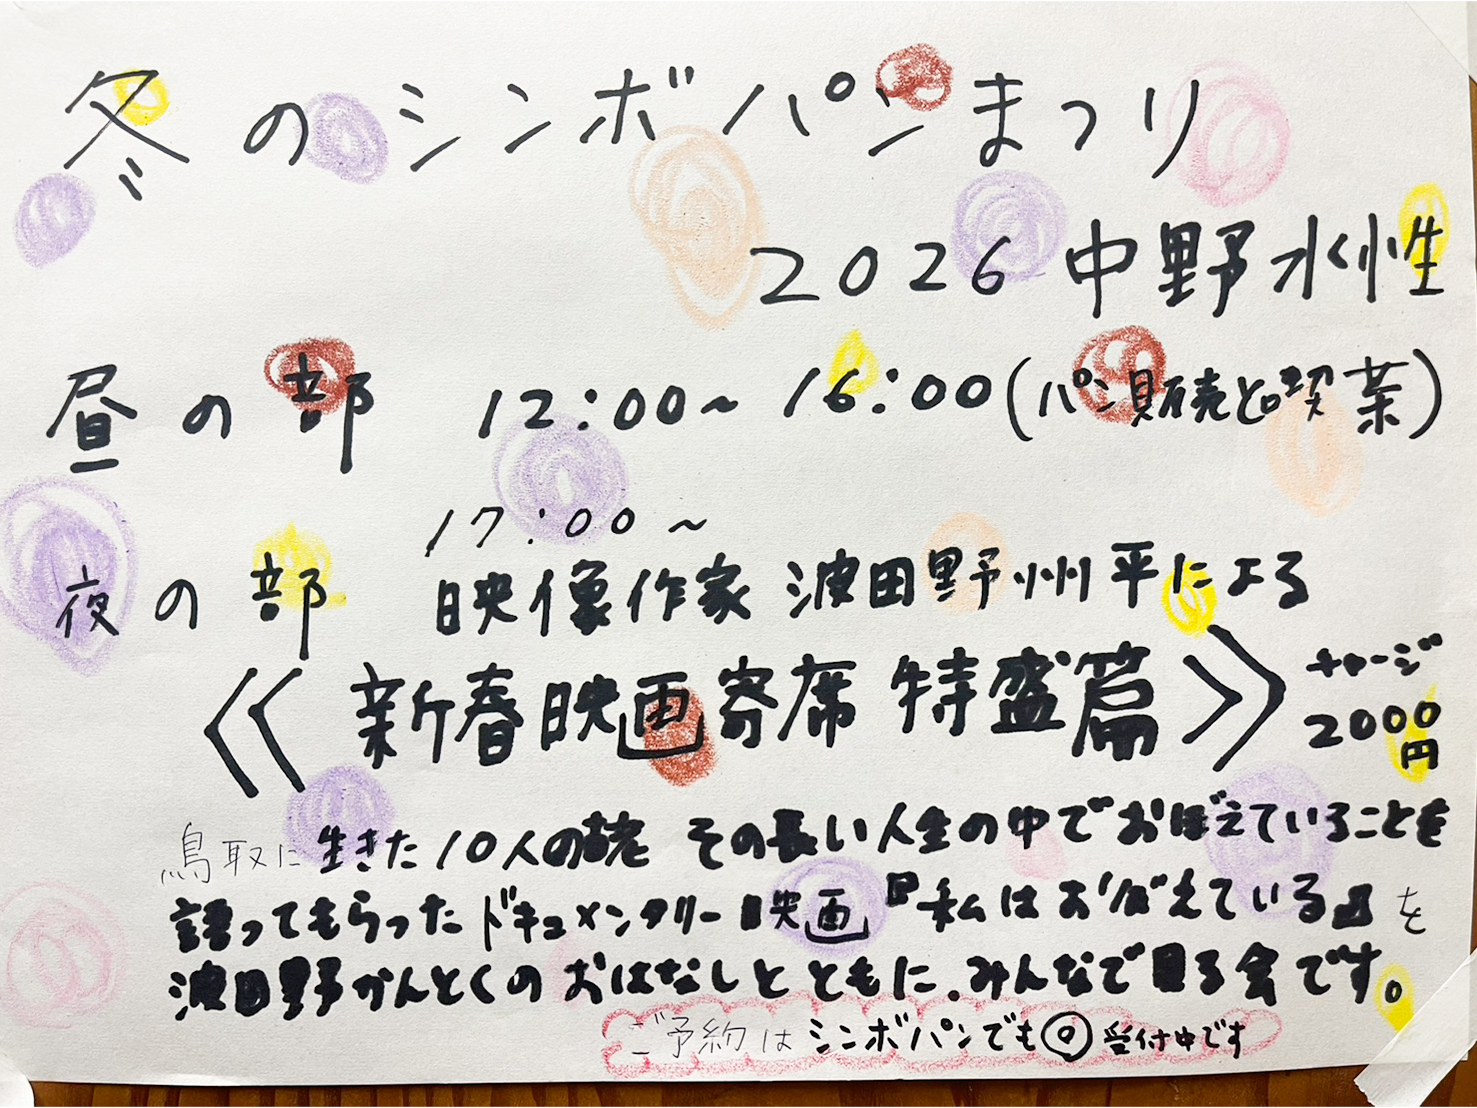 冬のシンボパンまつり
2026 中野水性
昼の部 12:00〜16:00(パン販売と喫茶)
夜の部 17:00〜
映像作家 波田野州平による
《新春映画寄席 特盛篇》 チャージ2000円
鳥取に生きた10人の声 その長い人生の中でおぼえていることを
語ってもらったドキュメンタリー映画『私はおぼえている』を
波田野かんとくのおはなしとともに、みんなで見る会です。
ご予約はシンボパンでも◎受付中です